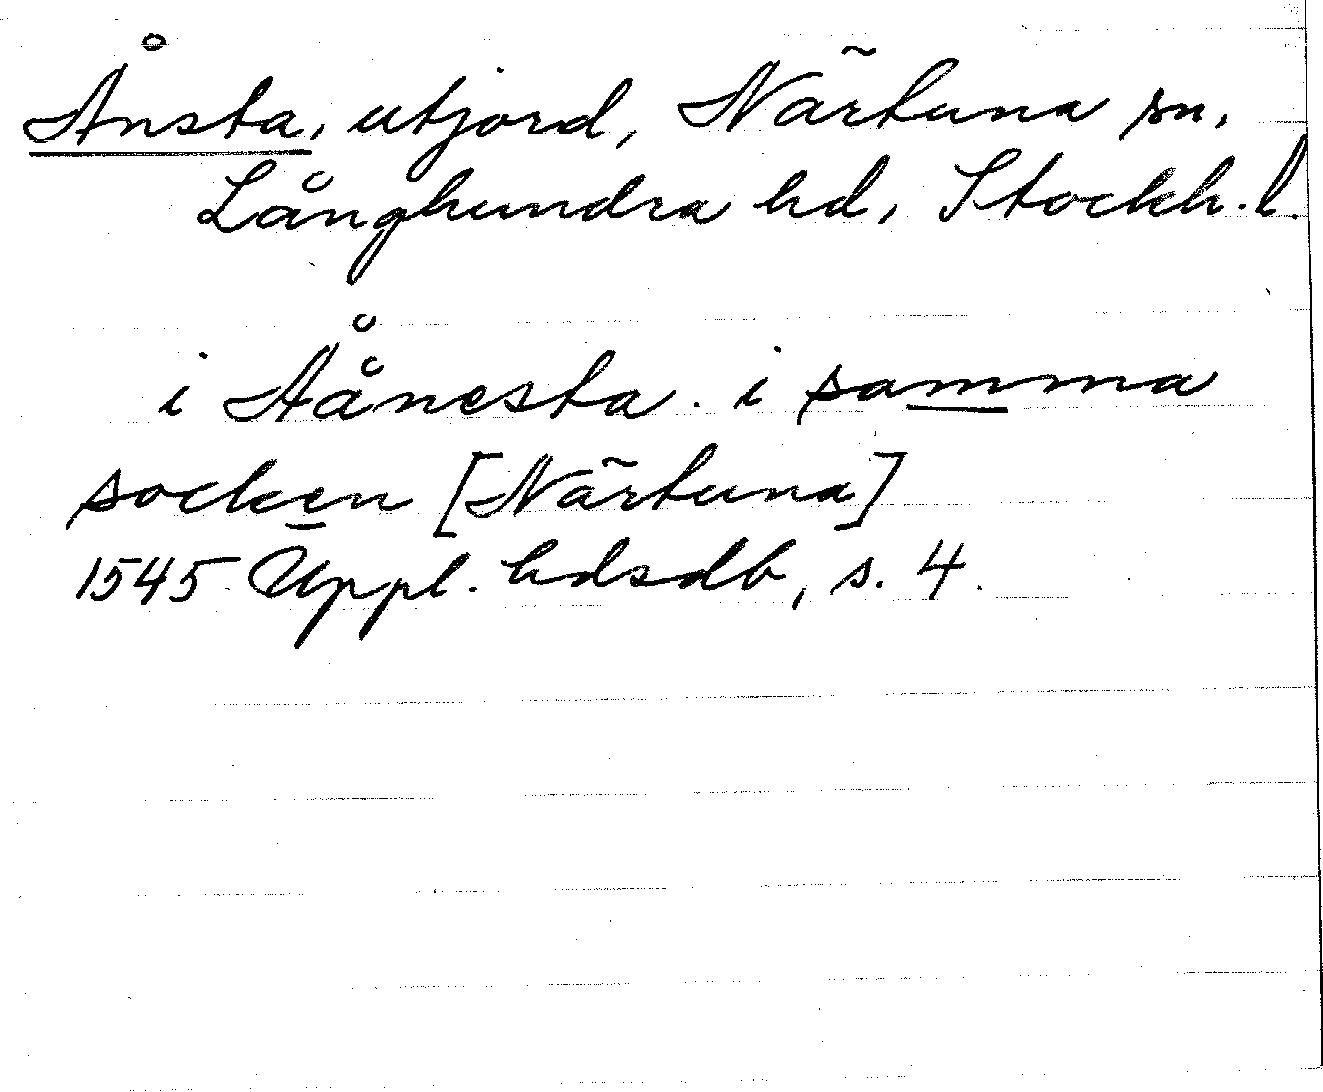 Ånsta, utjord, Närtuna sn,
Långhundra hd, Stockh. l.
i Åånesta. i samma
socken [Närtuna]
1545 Uppl. hdsdb, s. 4.